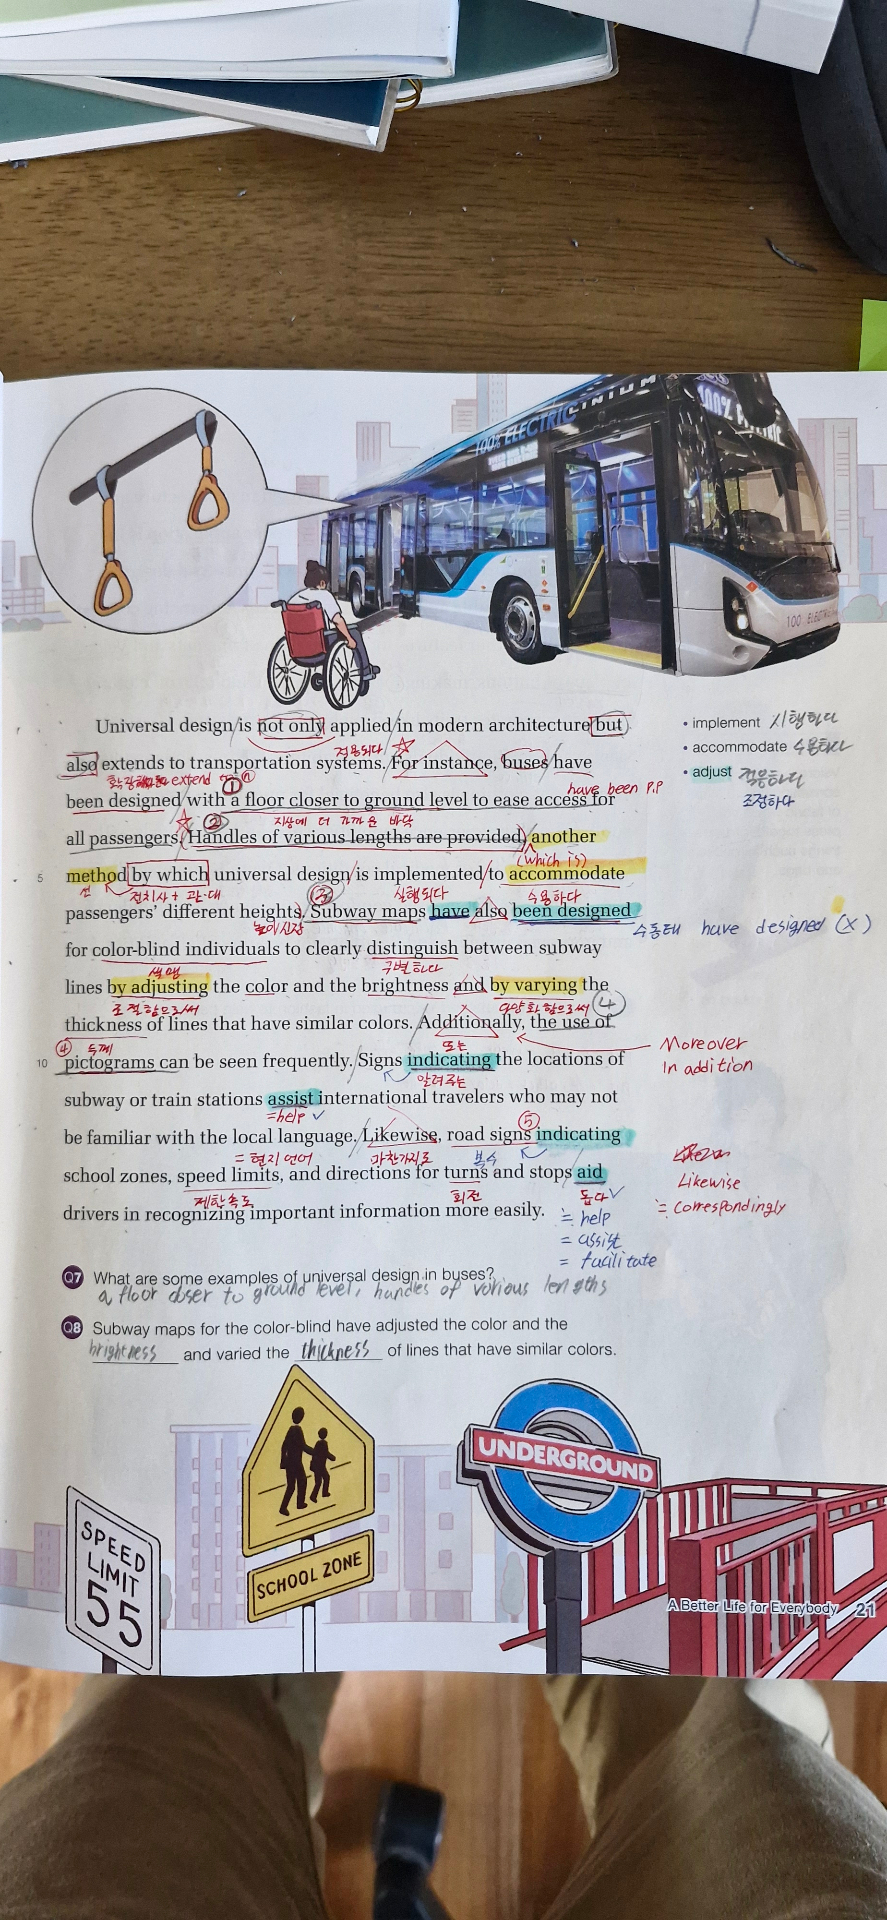 100% ELECTRIC
Universal design is not only applied in modern architecture but
적용되다
also extends to transportation systems. For instance, buses have
extend ①
have been P.P
been designed with a floor closer to ground level to ease access for
② 지상에 더 가까운 바닥
all passengers. Handles of various lengths are provided, another
(which is)
5 method by which universal design is implemented to accommodate
전치사 + 관·대 ③ 실행되다 수용하다
passengers' different heights. Subway maps have also been designed
수동태 have designed (X)
for color-blind individuals to clearly distinguish between subway
색맹 구별하다
lines by adjusting the color and the brightness and by varying the
조절함으로써 다양화함으로써 ④
thickness of lines that have similar colors. Additionally, the use of
④ 두께 또는
Moreover
10 pictograms can be seen frequently. Signs indicating the locations of
In addition
알려주는
subway or train stations assist international travelers who may not
=help ⑤
be familiar with the local language. Likewise, road signs indicating
= 현지 언어 마찬가지로 복수
school zones, speed limits, and directions for turns and stops aid
Likewise
제한속도 회전 돕다
= correspondingly
drivers in recognizing important information more easily.
= help
= assist
= facilitate
• implement 시행한다
• accommodate 수용하다
• adjust 적응하다
조정하다
Q7 What are some examples of universal design in buses?
a floor closer to ground level, handles of various lengths
Q8 Subway maps for the color-blind have adjusted the color and the
brightness and varied the thickness of lines that have similar colors.
UNDERGROUND
SPEED
LIMIT
55
SCHOOL ZONE
A Better Life for Everybody 21